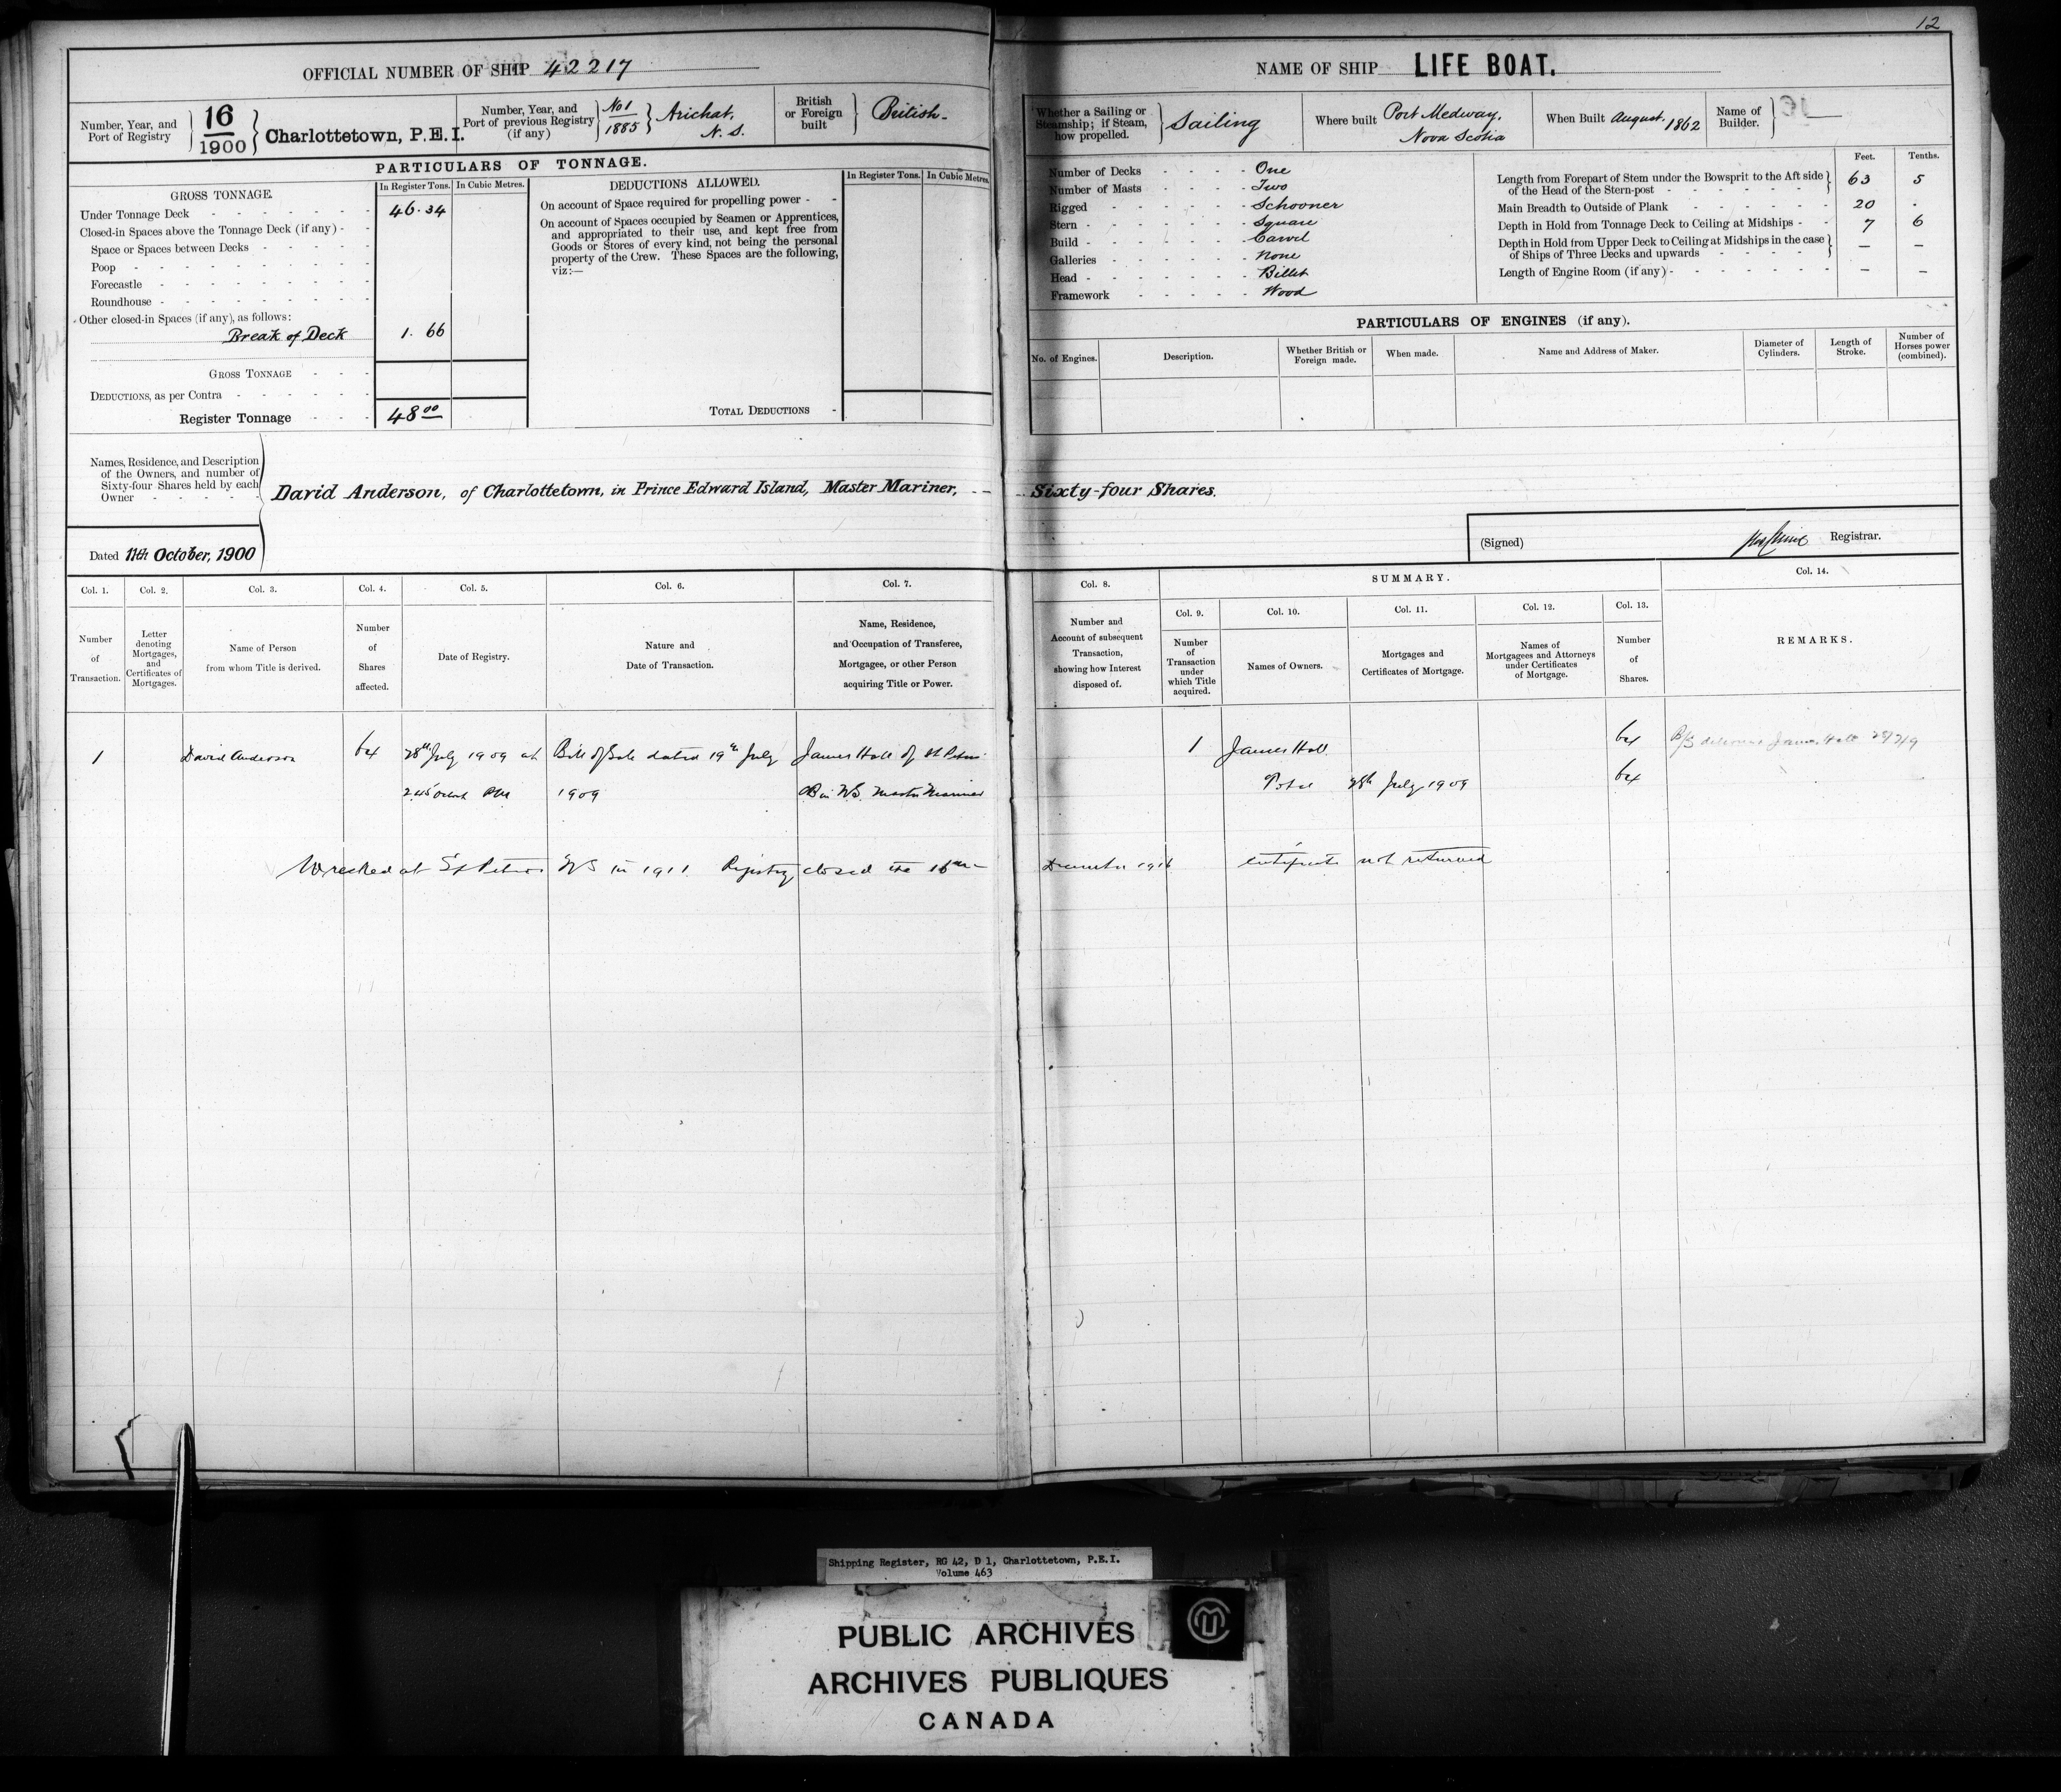 12
OFFICIAL NUMBER OF SHIP 42217
NAME OF SHIP LIFE BOAT.
Number, Year, and Port of Registry 16/1900 Charlottetown, P.E.I.
Number, Year, and Port of previous Registry (if any) No 1/1885 Arichat, N. S.
British or Foreign built British
Whether a Sailing or Steamship; if Steam, how propelled. Sailing
Where built Port Medway, Nova Scotia
When Built August, 1862
Name of Builder. —
PARTICULARS OF TONNAGE.
GROSS TONNAGE.
In Register Tons. In Cubic Metres.
Under Tonnage Deck 46.34
Closed-in Spaces above the Tonnage Deck (if any)
Space or Spaces between Decks
Poop
Forecastle
Roundhouse
Other closed-in Spaces (if any), as follows:
Break of Deck 1.66
GROSS TONNAGE
DEDUCTIONS, as per Contra
Register Tonnage 48.00
DEDUCTIONS ALLOWED.
In Register Tons. In Cubic Metres.
On account of Space required for propelling power
On account of Spaces occupied by Seamen or Apprentices,
and appropriated to their use, and kept free from
Goods or Stores of every kind, not being the personal
property of the Crew. These Spaces are the following,
viz:—
TOTAL DEDUCTIONS
Number of Decks One
Number of Masts Two
Rigged Schooner
Stern Square
Build Carvel
Galleries None
Head Billet
Framework Wood
Feet. Tenths.
Length from Forepart of Stem under the Bowsprit to the Aft side
of the Head of the Stern-post 63 5
Main Breadth to Outside of Plank 20 .
Depth in Hold from Tonnage Deck to Ceiling at Midships 7 6
Depth in Hold from Upper Deck to Ceiling at Midships in the case
of Ships of Three Decks and upwards — —
Length of Engine Room (if any) — —
PARTICULARS OF ENGINES (if any).
No. of Engines. Description. Whether British or Foreign made. When made. Name and Address of Maker. Diameter of Cylinders. Length of Stroke. Number of Horses power (combined).
Names, Residence, and Description
of the Owners, and number of
Sixty-four Shares held by each
Owner
David Anderson, of Charlottetown, in Prince Edward Island, Master Mariner, Sixty-four Shares.
Dated 11th October, 1900
(Signed) Registrar.
Col. 1. Col. 2. Col. 3. Col. 4. Col. 5. Col. 6. Col. 7. Col. 8. SUMMARY. Col. 14.
Col. 9. Col. 10. Col. 11. Col. 12. Col. 13.
Number of Transaction.
Letter denoting Mortgages, and Certificates of Mortgages.
Name of Person from whom Title is derived.
Number of Shares affected.
Date of Registry.
Nature and Date of Transaction.
Name, Residence, and Occupation of Transferee, Mortgagee, or other Person acquiring Title or Power.
Number and Account of subsequent Transaction, showing how Interest disposed of.
Number of Transaction under which Title acquired.
Names of Owners.
Mortgages and Certificates of Mortgage.
Names of Mortgagees and Attorneys under Certificates of Mortgage.
Number of Shares.
REMARKS.
1 David Anderson 64 28th July 1909 at Bill of Sale dated 19th July James Hall of St Peters 1 James Hall 64 B/S James Hall
2.45 PM 1909 NS. Master Mariner Total 28th July 1909 64
Wrecked at St Peters NS in 1911 Registry closed the 16th December certificate not returned
Shipping Register, RG 42, D 1, Charlottetown, P.E.I.
Volume 463
PUBLIC ARCHIVES
ARCHIVES PUBLIQUES
CANADA